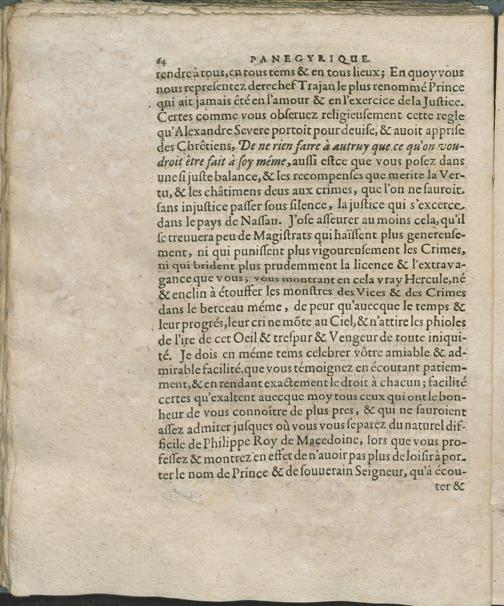 64 PANEGYRIQUE
rendre à tous, en tous tems & en tous lieux; En quoy vous
nous representez derechef Trajan le plus renommé Prince
qui ait jamais été en l'amour & en l'exercice de la Justice.
Certes comme vous obseruez religieusement cette regle
qu'Alexandre Severe portoit pour deuise, & auoit apprise
des Chrêtiens, De ne rien faire à autruy que ce qu'on vou-
droit être fait à soy méme, aussi estce que vous posez dans
une si juste balance, & les recompenses que merite la Ver-
tu, & les châtimens deus aux crimes, que l'on ne sauroit
sans injustice passer sous silence, la justice qui s'excerce
dans le pays de Nassau. J'ose asseurer au moins cela, qu'il
se treuuera peu de Magistrats qui haïssent plus genereuse-
ment, ni qui punissent plus vigoureusement les Crimes,
ni qui brident plus prudemment la licence & l'extrava-
gance que vous; vous montrant en cela vray Hercule, né
& enclin à étouffer les monstres des Vices & des Crimes
dans le berceau méme, de peur qu'auecque le temps &
leur progrés, leur cri ne môte au Ciel, & n'attire les phioles
de l'ire de cet Oeil & trespur & Vengeur de toute iniqui-
té. Je dois en méme tems celebrer vôtre amiable & ad-
mirable facilité, que vous témoignez en écoutant patiem-
ment, & en rendant exactement le droit à chacun; facilité
certes qu'exaltent auecque moy tous ceux qui ont le bon-
heur de vous connoitre de plus pres, & qui ne sauroient
assez admirer jusques où vous vous separez du naturel dif-
ficile de Philippe Roy de Macedoine, lors que vous pro-
fessez & montrez en effet de n'auoir pas plus de loisir à por-
ter le nom de Prince & de souuerain Seigneur, qu'à écou-
ter &